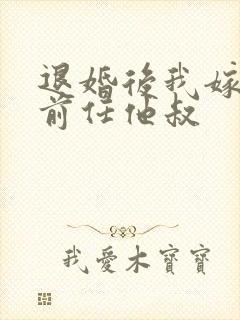 退婚後我嫁
前任他叔
我愛木寶寶